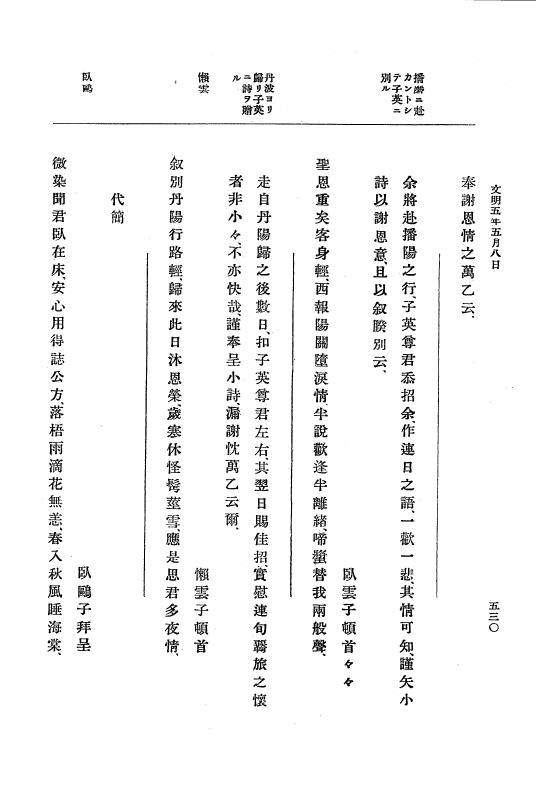 文明五年五月八日
五三〇
奉謝恩情之萬乙云、
播磨ニ赴
カントシ
テ子英ニ
別ル
余將赴播陽之行、子英尊君忝招余、作連日之語、一歡一悲、其情可知、謹矢小
詩以謝恩意、且以叙睽別云、
臥雲子頓首々々
聖恩重矣客身輕、西報陽關墮淚情、半說歡逢半離緒、啼螿替我兩般聲、
丹波ヨリ
歸リ子英
ニ詩ヲ贈
ル
走自丹陽歸之後數日、扣子英尊君左右、其翌日賜佳招、實慰連旬羇旅之懷
者非小々、不亦快哉、謹奉呈小詩、漏謝忱萬乙云爾、
懶雲
懶雲子頓首
叙別丹陽行路輕、歸來此日沐恩榮、歲寒休怪髩莖雪、應是思君多夜情、
代簡
臥鷗
臥鷗子拜呈
微染聞君臥在床、安心用得誌公方、落梧雨滴花無恙、春入秋風睡海棠、